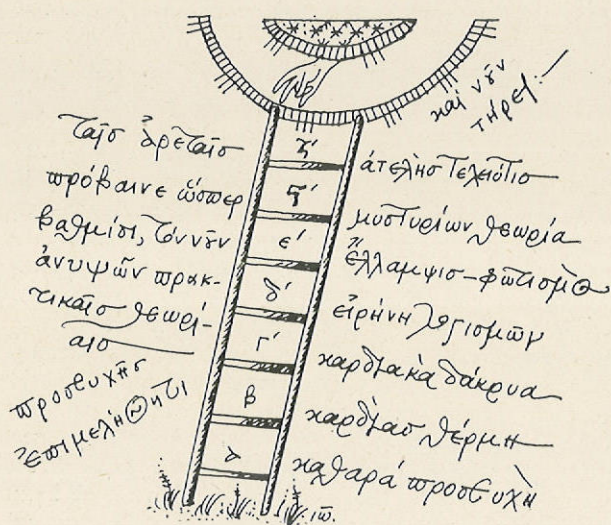 καὶ νῦν
τήρει:—
ταῖσ ἀρεταῖσ
πρόβαινε ὥσπερ
βαθμίσι, τὸν νοῦν
ἀνυψῶν πρακ-
τικαῖσ θεωρί-
αισ
προσευχῆσ
ζ'
ς'
ε'
δ'
γ'
β
α
ἀτελὴσ τελειότισ
μυστυρίων θεωρία
ἔλλαμψισ-φωτισμὸσ
εἰρήνη λογισμῶν
καρδιακὰ δάκρυα
καρδίασ θέρμη
καθαρά προσευχὴ